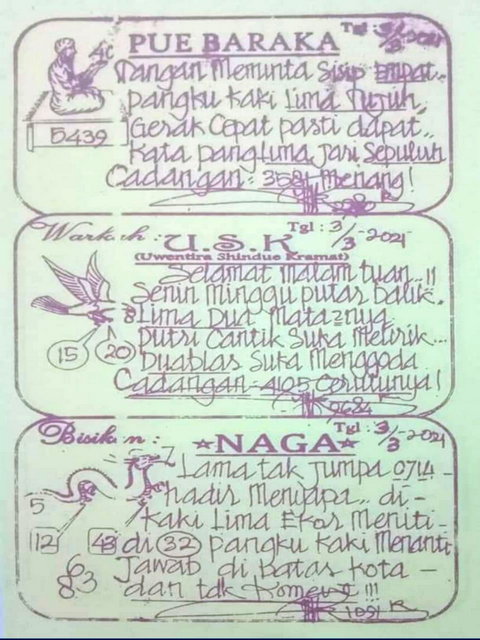 PUE BARAKA
Tgl : 3/3-2021
4c
5439
Tangan Meminta Sisip Empat..
pangku kaki Lima Tujuh,
Gerak Cepat pasti dapat..
Kata pangLima Jari Sepuluh
Cadangan : 3581 Menang!
Warkah :
U.S.K
Tgl : 3/3-2021
(Uwentira Shindue Kramat)
Selamat Malam tuan..!!
Senin Minggu putar balik.
8 Lima Dua Matanya
15
20
Putri Cantik Suka Melirik...
Duablas Suka Menggoda
Cadangan-4105
9684
Bisikan :
NAGA
Tgl : 3/3-2021
7
Lama tak jumpa 0714 -
hadir Menyapa.. di -
5
kaki Lima Ekor Meniti -
12
43
di 32 pangku kaki Menanti
863
Jawab di batas kota -
dan tdk
1091